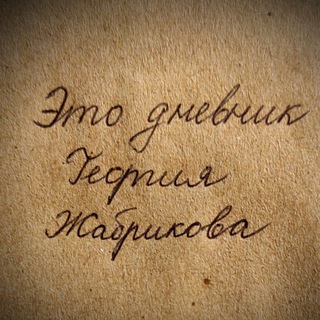 Это дневник
Георгия
Жабрикова